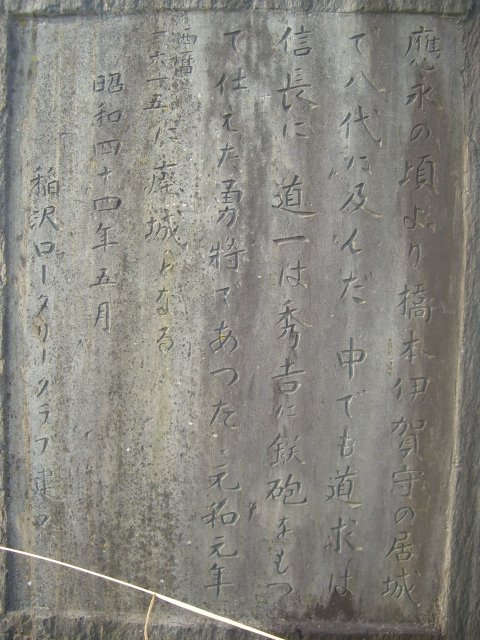 應永の頃より橋本伊賀守の居城
で八代に及んだ 中でも道求は
信長に 道一は秀吉に鉄砲をもつ
て仕えた勇將であつた 元和元年
西暦一六一五に廃城となる
昭和四十四年五月
稲沢ロータリークラブ建つ